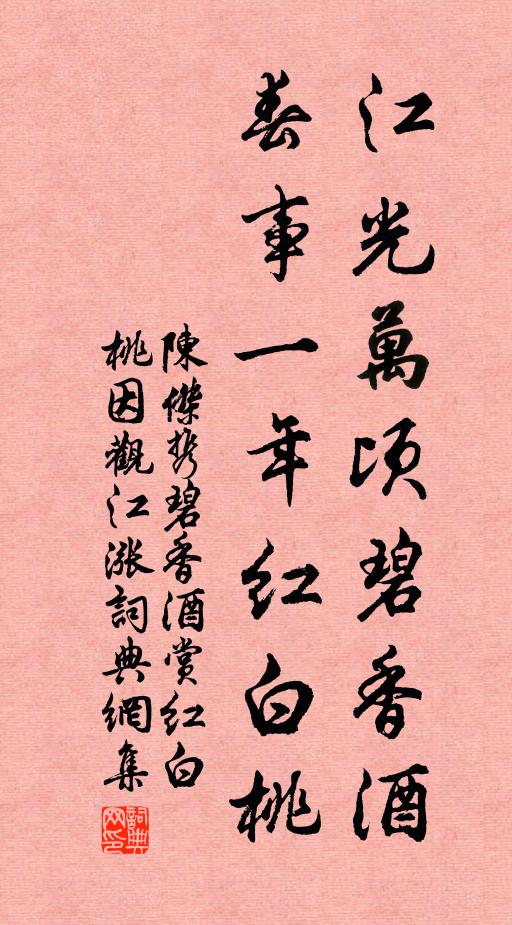 江光萬頃碧香酒
春事一年紅白桃
陳傑携碧香酒賞紅白
桃因觀江漲詞典網集
詞典
网印